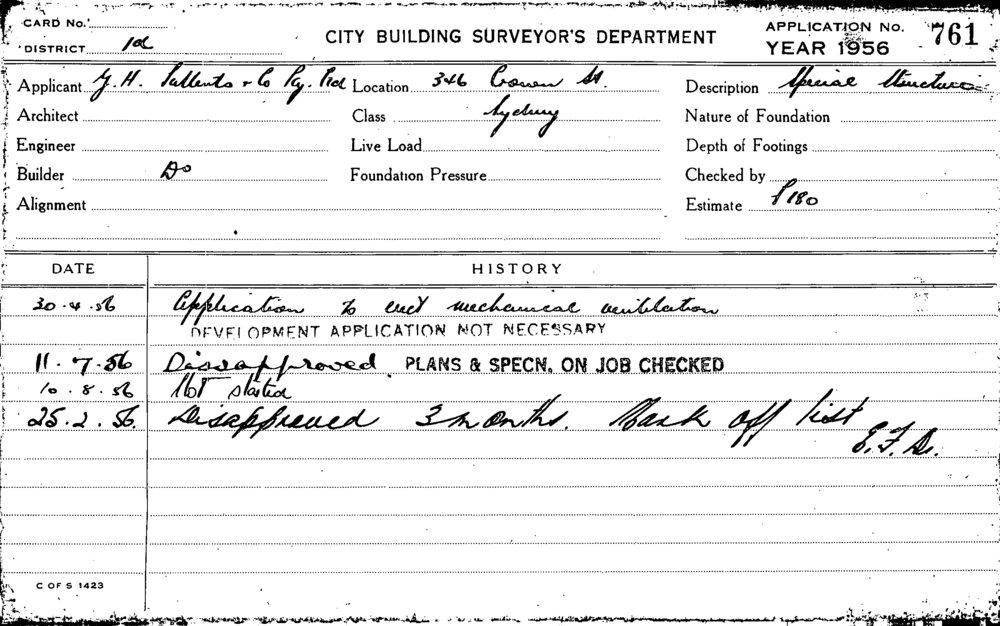 CARD No.
APPLICATION No. 761
DISTRICT 1d
CITY BUILDING SURVEYOR'S DEPARTMENT
YEAR 1956
Applicant G. H. & Co Pty. Ltd Location 346 Crown St. Description Special Structure
Architect Class Sydney Nature of Foundation
Engineer Live Load Depth of Footings
Builder Do Foundation Pressure Checked by
Alignment Estimate £180
DATE HISTORY
30.4.56 Application to erect mechanical ventilation
DEVELOPMENT APPLICATION NOT NECESSARY
11.7.56 Dissapproved PLANS & SPECN. ON JOB CHECKED
10.8.56 Not started
25.2.56 Disapproved 3 months. Mark off list
E. F. De.
C OF S 1423